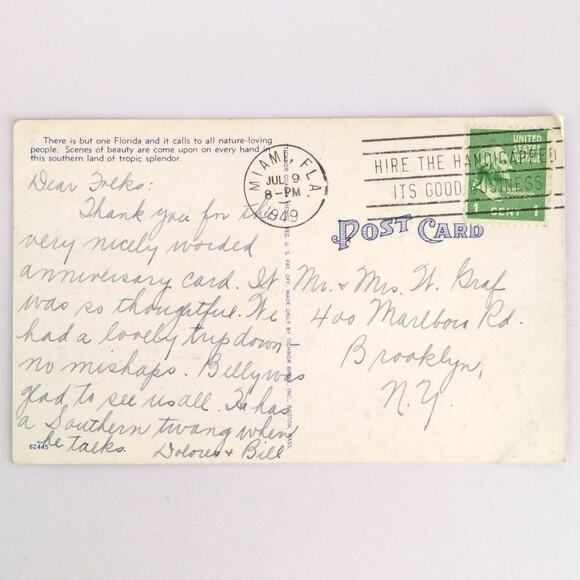 There is but one Florida and it calls to all nature-loving
people. Scenes of beauty are come upon on every hand in
this southern land of tropic splendor.
MIAMI, FLA.
JUL 9
8-PM
1949
HIRE THE HANDICAPPED
ITS GOOD BUSINESS
UNITED
STATES
POSTAGE
1 CENT 1
POST CARD
Dear Folks:
Thank you for this
very nicely worded
anniversary card. It
was so thoughtful. We
had a lovely trip down-
no mishaps. Billy was
glad to see us all. He has
a Southern twang when
he talks.
Dolores & Bill
62445
MADE ONLY BY TICHNOR BROS. INC., BOSTON, MASS.
Mr. & Mrs. W. Graf
400 Marlboro Rd.
Brooklyn,
N.Y